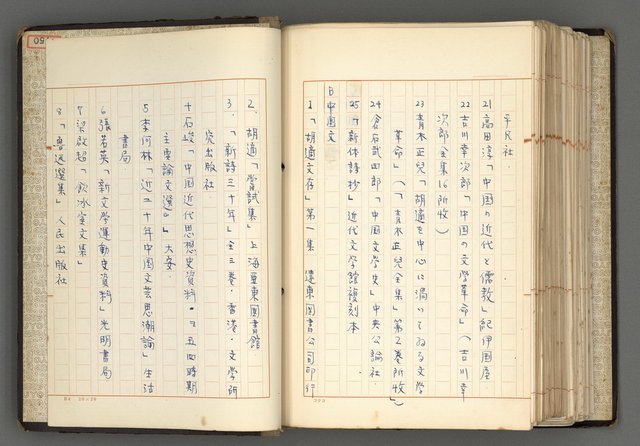 平凡社.
21 高田淳「中国の近代と儒教」紀伊国屋
22 吉川幸次郎「中国の文学革命」（吉川幸
次郎全集16所收）
23 青木正兒「胡適を中心に渦いてゐる文学
革命」（「青木正兒全集」第2巻所收）
24 倉石武四郎「中国文学史」中央公論社.
25 「新体詩抄」近代文学館複刻本
B 中国文
1 「胡適文存」第一集 遠東図書公司印行
2. 胡適「嘗試集」上海亜東図書館
3. 「新詩三十年」全三巻. 香港. 文学研
究出版社.
4 石峻「中国近代思想史資料・五四時期
主要論文選」大安.
5 李何林「近二十年中国文芸思潮論」生活
書局
6 張若英「新文学運動史資料」光明書局
7 梁啟超「飲冰室文集」
8 「魯迅選集」人民出版社
05
B4 20×20